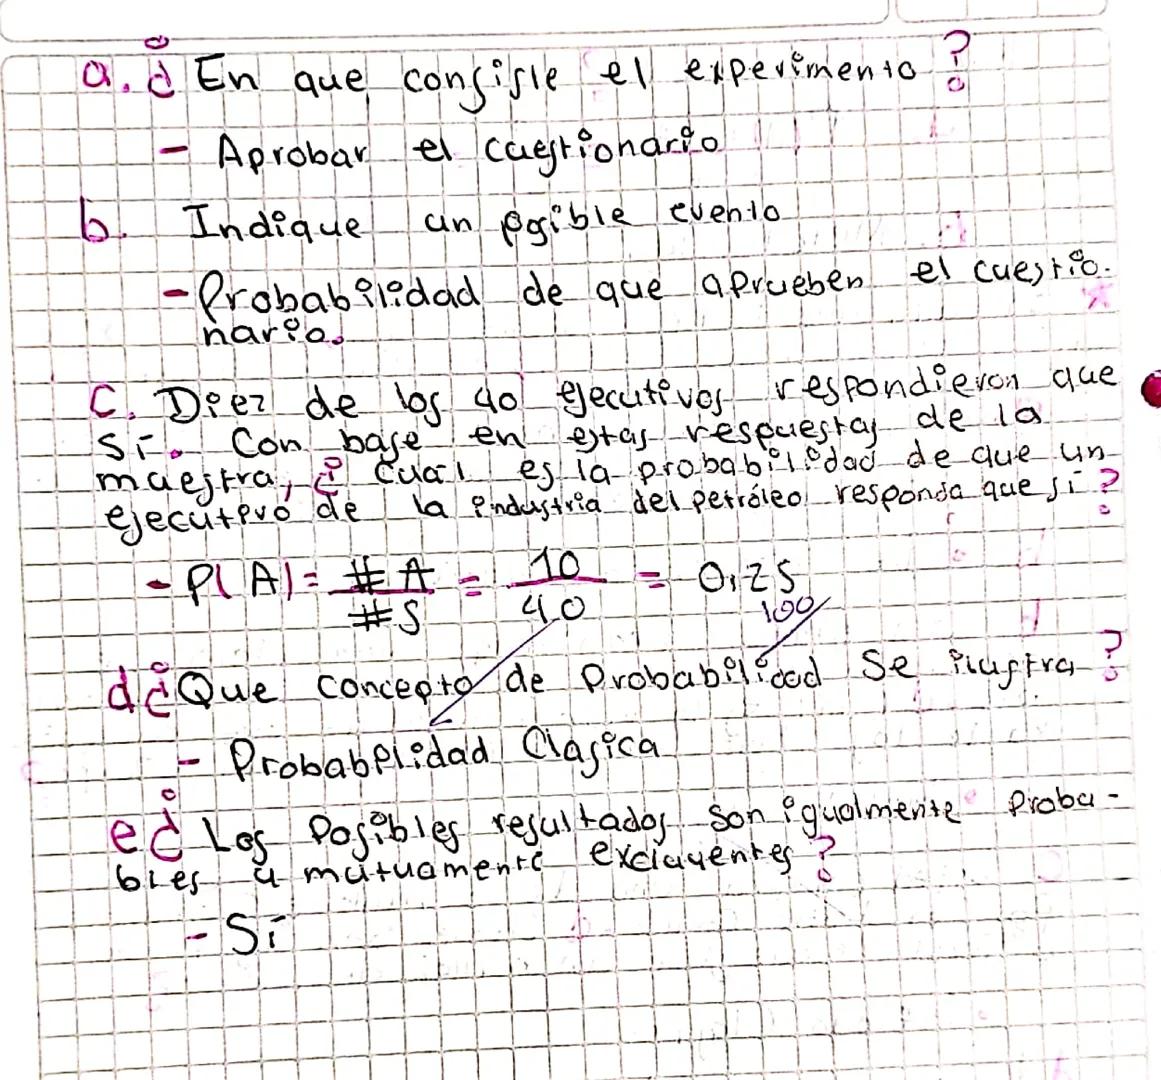 a. ¿ En que consiste el experimento ?
- Aprobar el cuestionario
b. Indique un posible evento
- Probabilidad de que aprueben el cuestio-
nario.
C. Diez de los 40 ejecutivos respondieron que
Sí. Con base en estas respuestas de la
maestra, ¿ Cual es la probabilidad de que un
ejecutivo de la industria del petróleo responda que sí ?
- P(A) = #A / #S = 10 / 40 = 0,25
100
d ¿ Que concepto de Probabilidad Se ilustra ?
- Probabilidad Clasica
e ¿ Los Posibles resultados son igualmente Proba-
bles y mutuamente excluyentes ?
- Sí